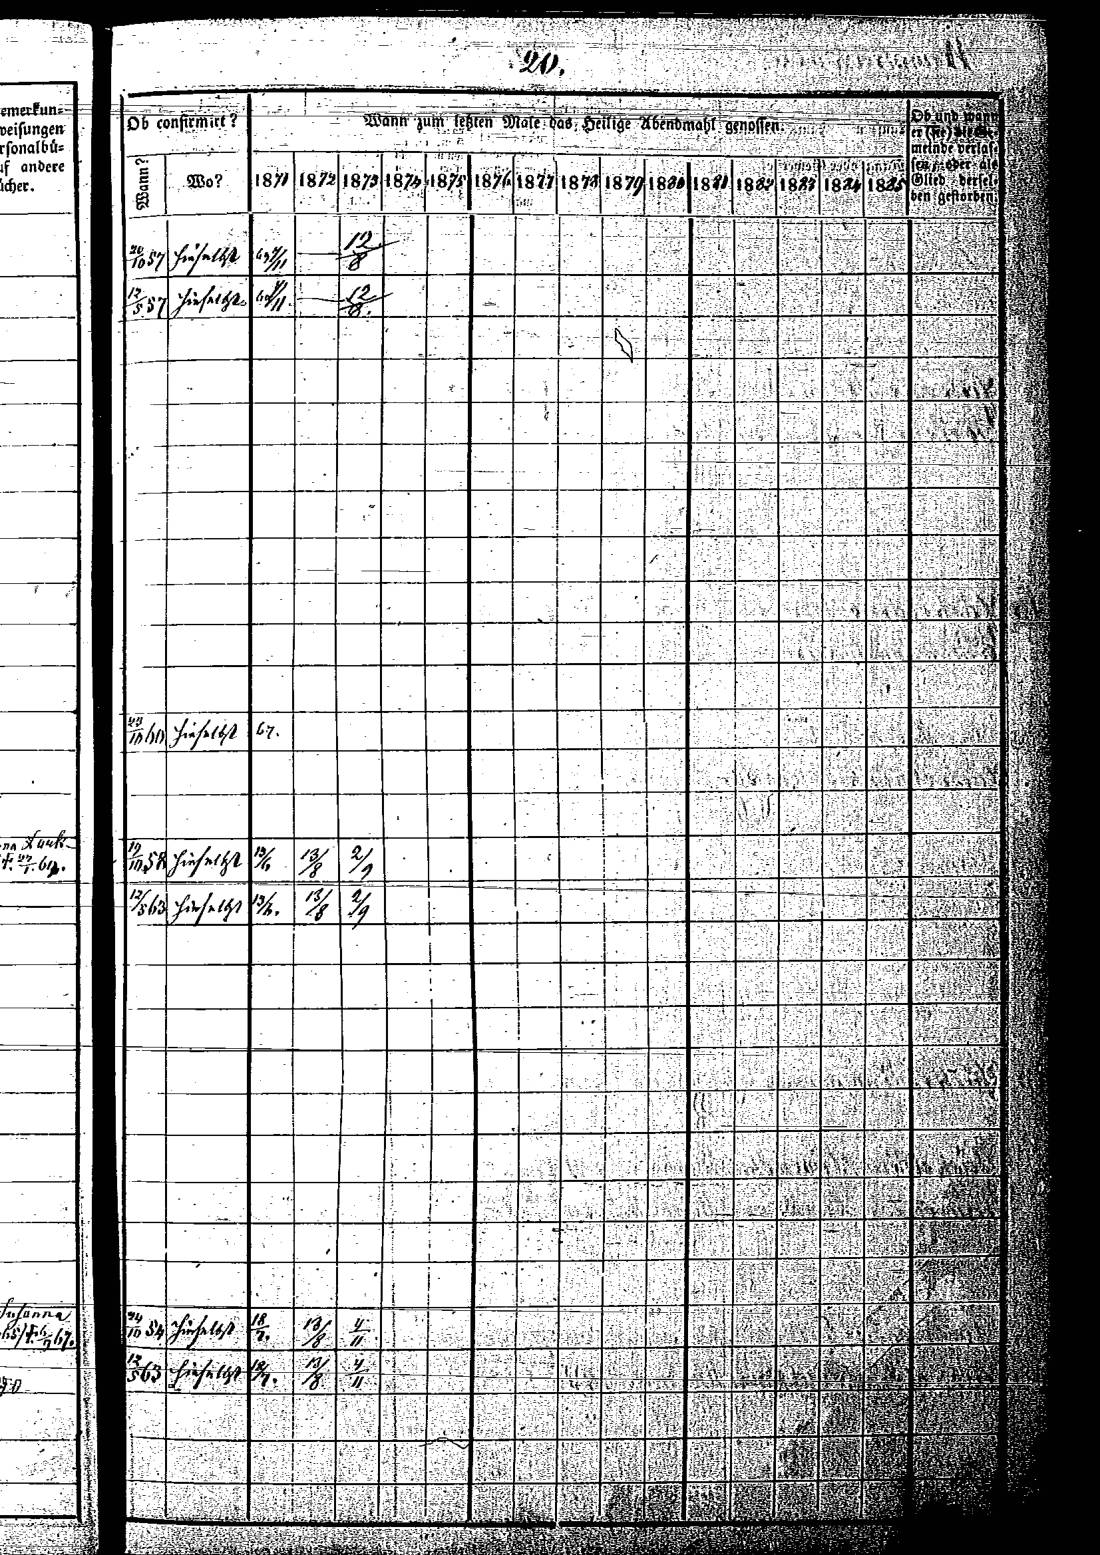 20.
emerkun=
weisungen
rsonalbü=
uf andere
ücher.
Ob confirmirt?
Wann zum letzten Male das Heilige Abendmahl genossen.
Ob und wann
er (sie) die Ge=
meinde verlas=
sen oder als
Glied dersel=
ben gestorben.
Wann? Wo? 1871 1872 1873 1874 1875 1876 1877 1878 1879 1880 1881 1882 1883 1884 1885
20/10 57 hieselbst 4/11 — 12/8
12/5 57 hieselbst 4/11. — 12/8.
10 60 hieselbst 67.
hieselbst 13/6 13/8 2/9
12/5 63 hieselbst 13/6. 13/8 2/9
Susanna
24/10 54 hieselbst 18/7. 13/8 4/11
12/5 63 hieselbst 18/7. 13/8 4/11